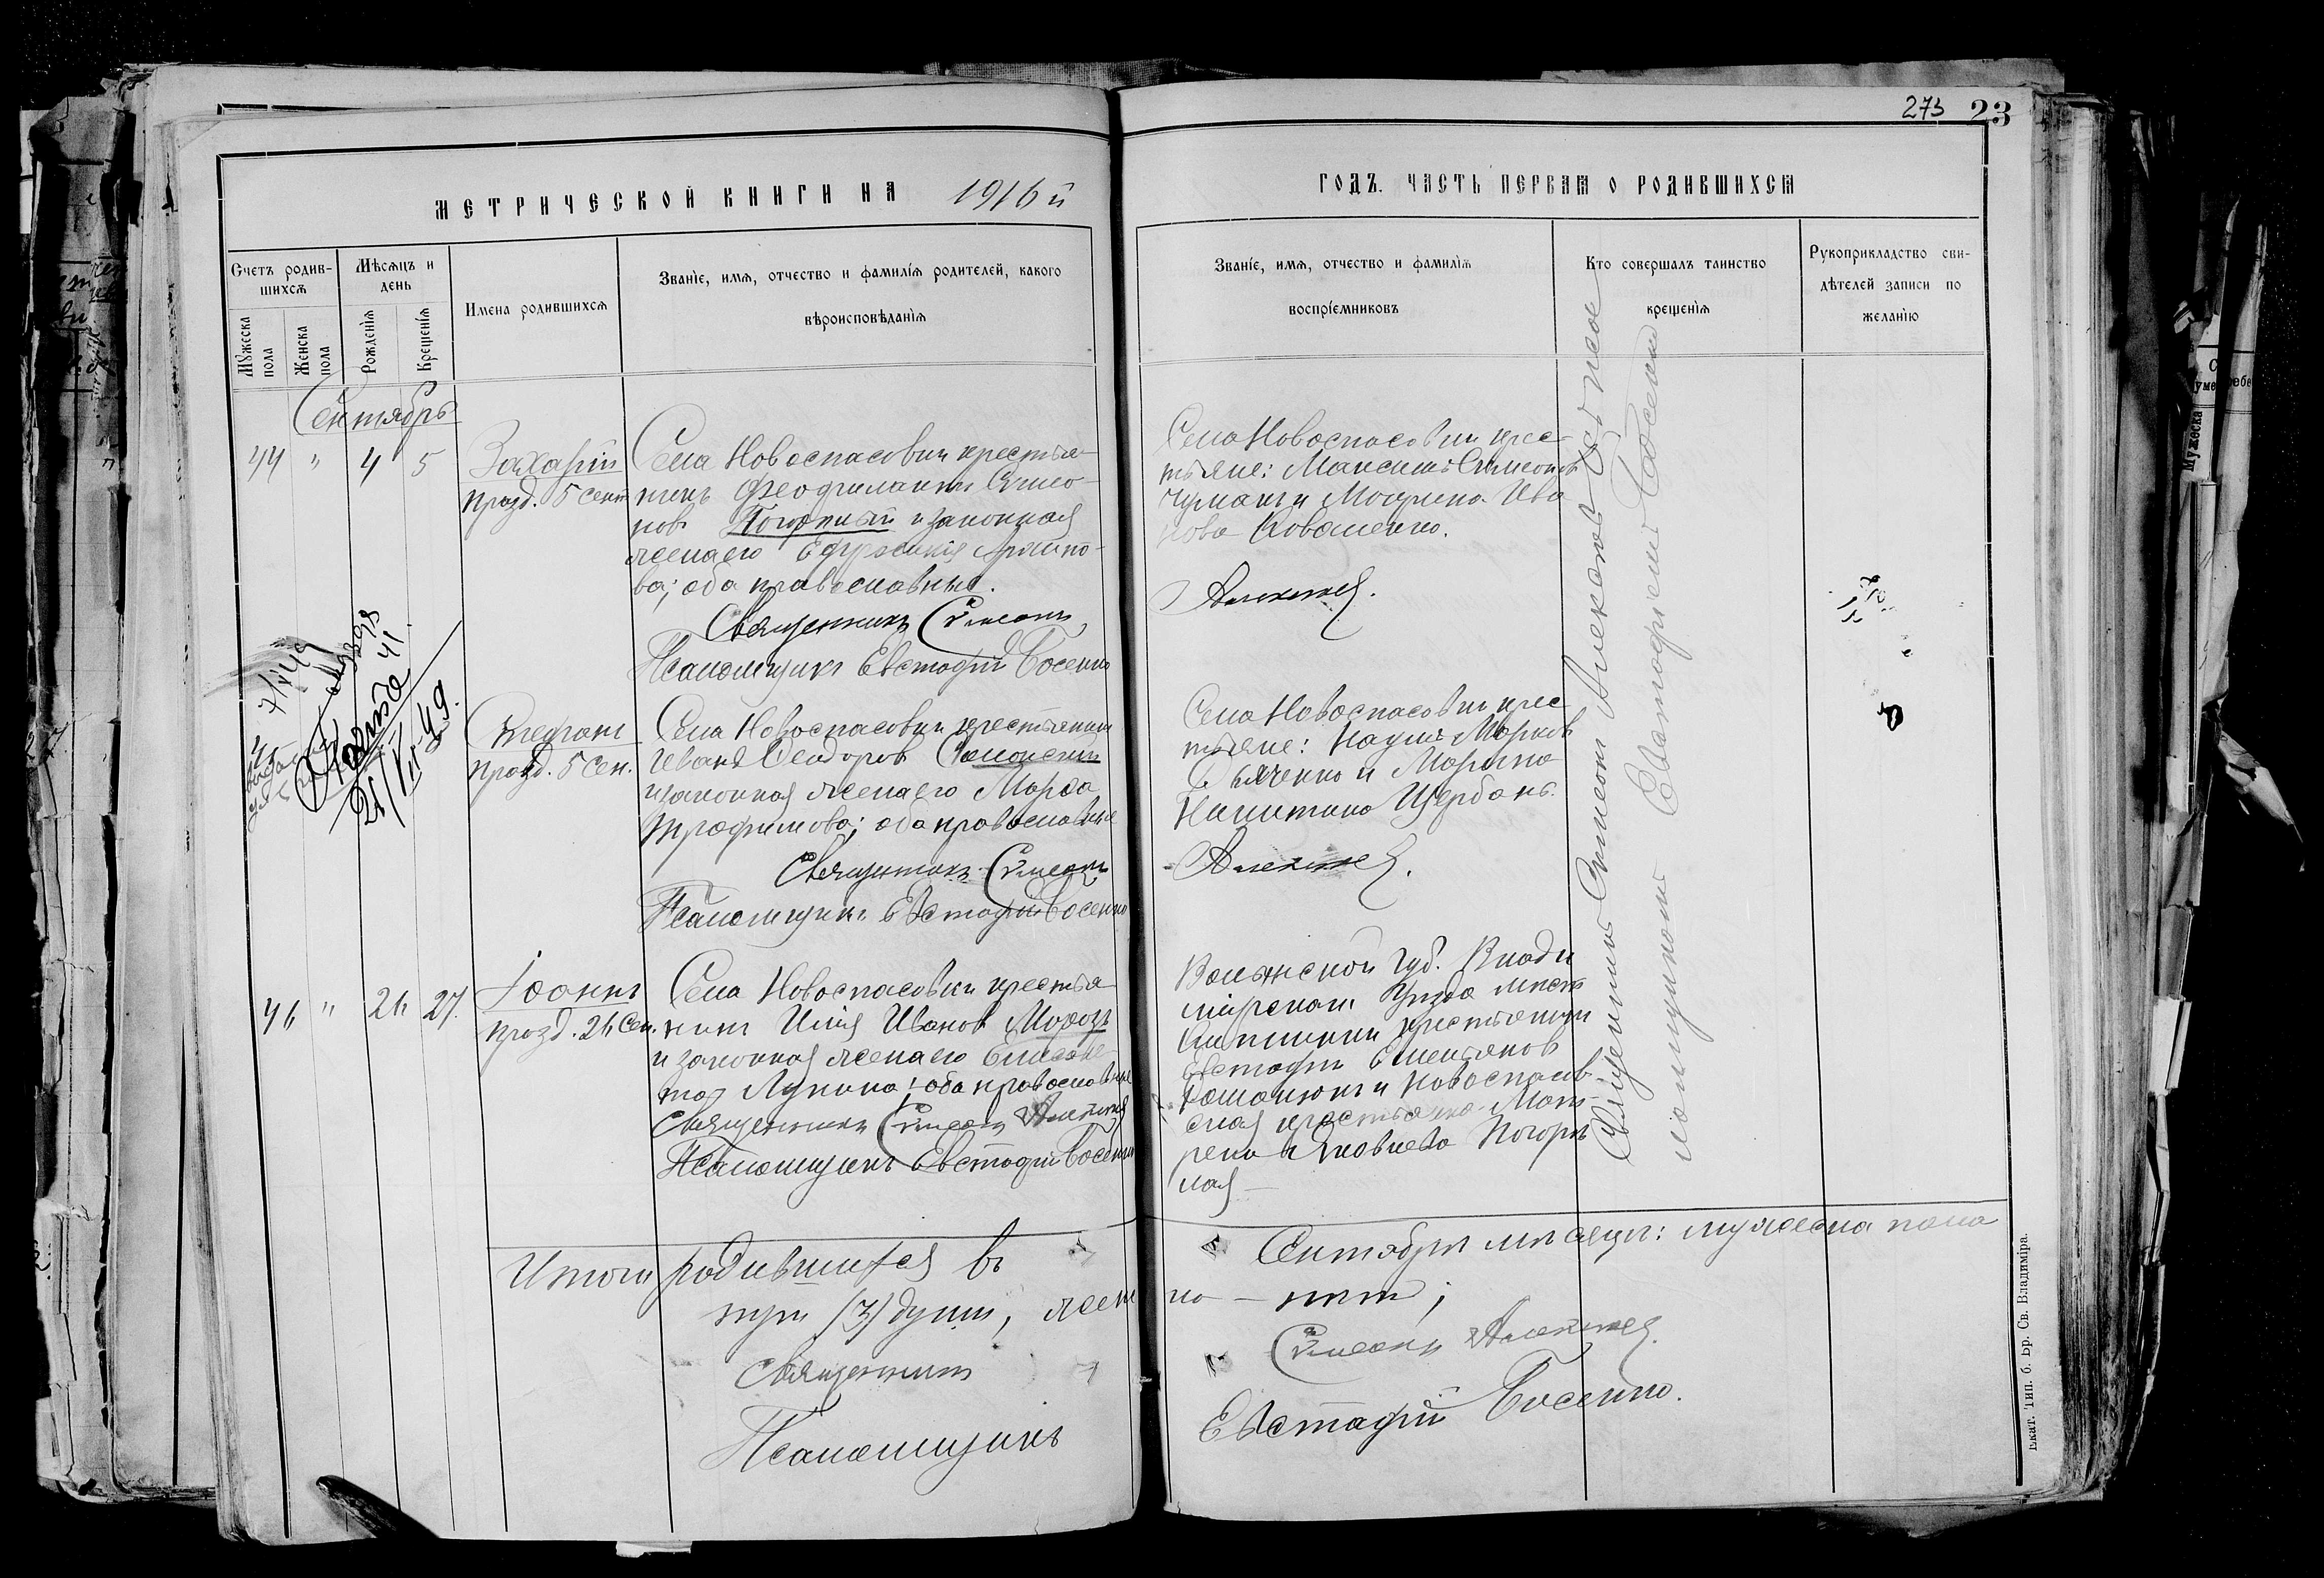 273 23
МЕТРИЧЕСКОЙ КНИГИ НА 1916 й
ГОДЪ. ЧАСТЬ ПЕРВАЯ О РОДИВШИХСЯ
Счетъ родив-
шихся
Мужеска пола
Женска пола
Мѣсяцъ и
день
Рожденія
Крещенія
Имена родившихся
Званіе, имя, отчество и фамилія родителей, какого
вѣроисповѣданія
Званіе, имя, отчество и фамилія
воспріемниковъ
Кто совершалъ таинство
крещенія
Рукоприкладство сви-
дѣтелей записи по
желанію
Сентябрь
44 " 4 5
Захарій
празд. 5 сент
Села Новоспасовки крестья-
нинъ Феофилактъ Симео-
новъ Погорѣлый и законная
жена его Евфросинія
ва; оба православные.
Священникъ Симеонъ
Псаломщикъ Евстафій Босенко
Села Новоспасовки крес-
тьяне: Максимъ Симеоновъ
Чумакъ и Мокрина Ива
нова Коваленко.
Алексѣев.
7/V 49
41
21/VII-49.
Стефанъ
празд. 5 Сен.
Села Новоспасовки крестьянинъ
Иванъ Феодоровъ
и законная жена его Марфа
Трофимова; оба православные
Священникъ Симеонъ
Псаломщикъ Евстафій Босенко
Села Новоспасовки крес
тьяне: Наумъ Марковъ
Дьяченко и Марина
Никитина Щербань.
Алексѣев.
46 " 26 27.
Іоаннъ
празд. 26 Сен.
Села Новоспасовки крестья-
нинъ Илія Ивановъ Морозъ
и законная жена его Елисаве
та Лукина; оба православные
Священникъ Симеонъ Алексѣев
Псаломщикъ Евстафій Босенко
Волынской Губ. Влади
мірскаго Уѣзда мѣст
крестьянинъ
Евстафій Емельяновъ
Романюкъ и Новоспасов-
ская крестьянка Мат-
рена Яковлева Погорѣ
лая
Священникъ Симеонъ Алексѣев
Псаломщикъ Евстафій Босенко
Итого родившихся въ Сентябрѣ мѣсяцѣ: мужеска пола
три (3) души, женска – нѣтъ;
Священникъ Симеонъ Алексѣев.
Псаломщикъ Евстафій Босенко.
Екат. Тип. б. Бр. Св. Владиміра.